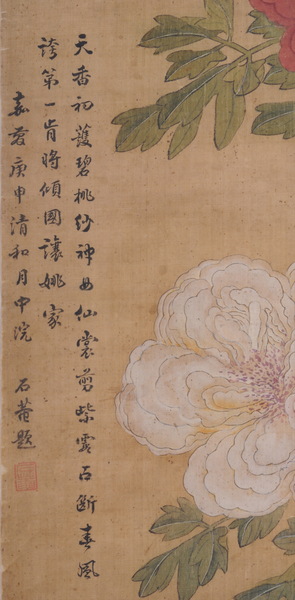 天香初護碧桃紗神女仙裳剪紫霞占斷春風
誇第一肯將傾國讓姚家
嘉慶庚申清和月中浣 石菴題